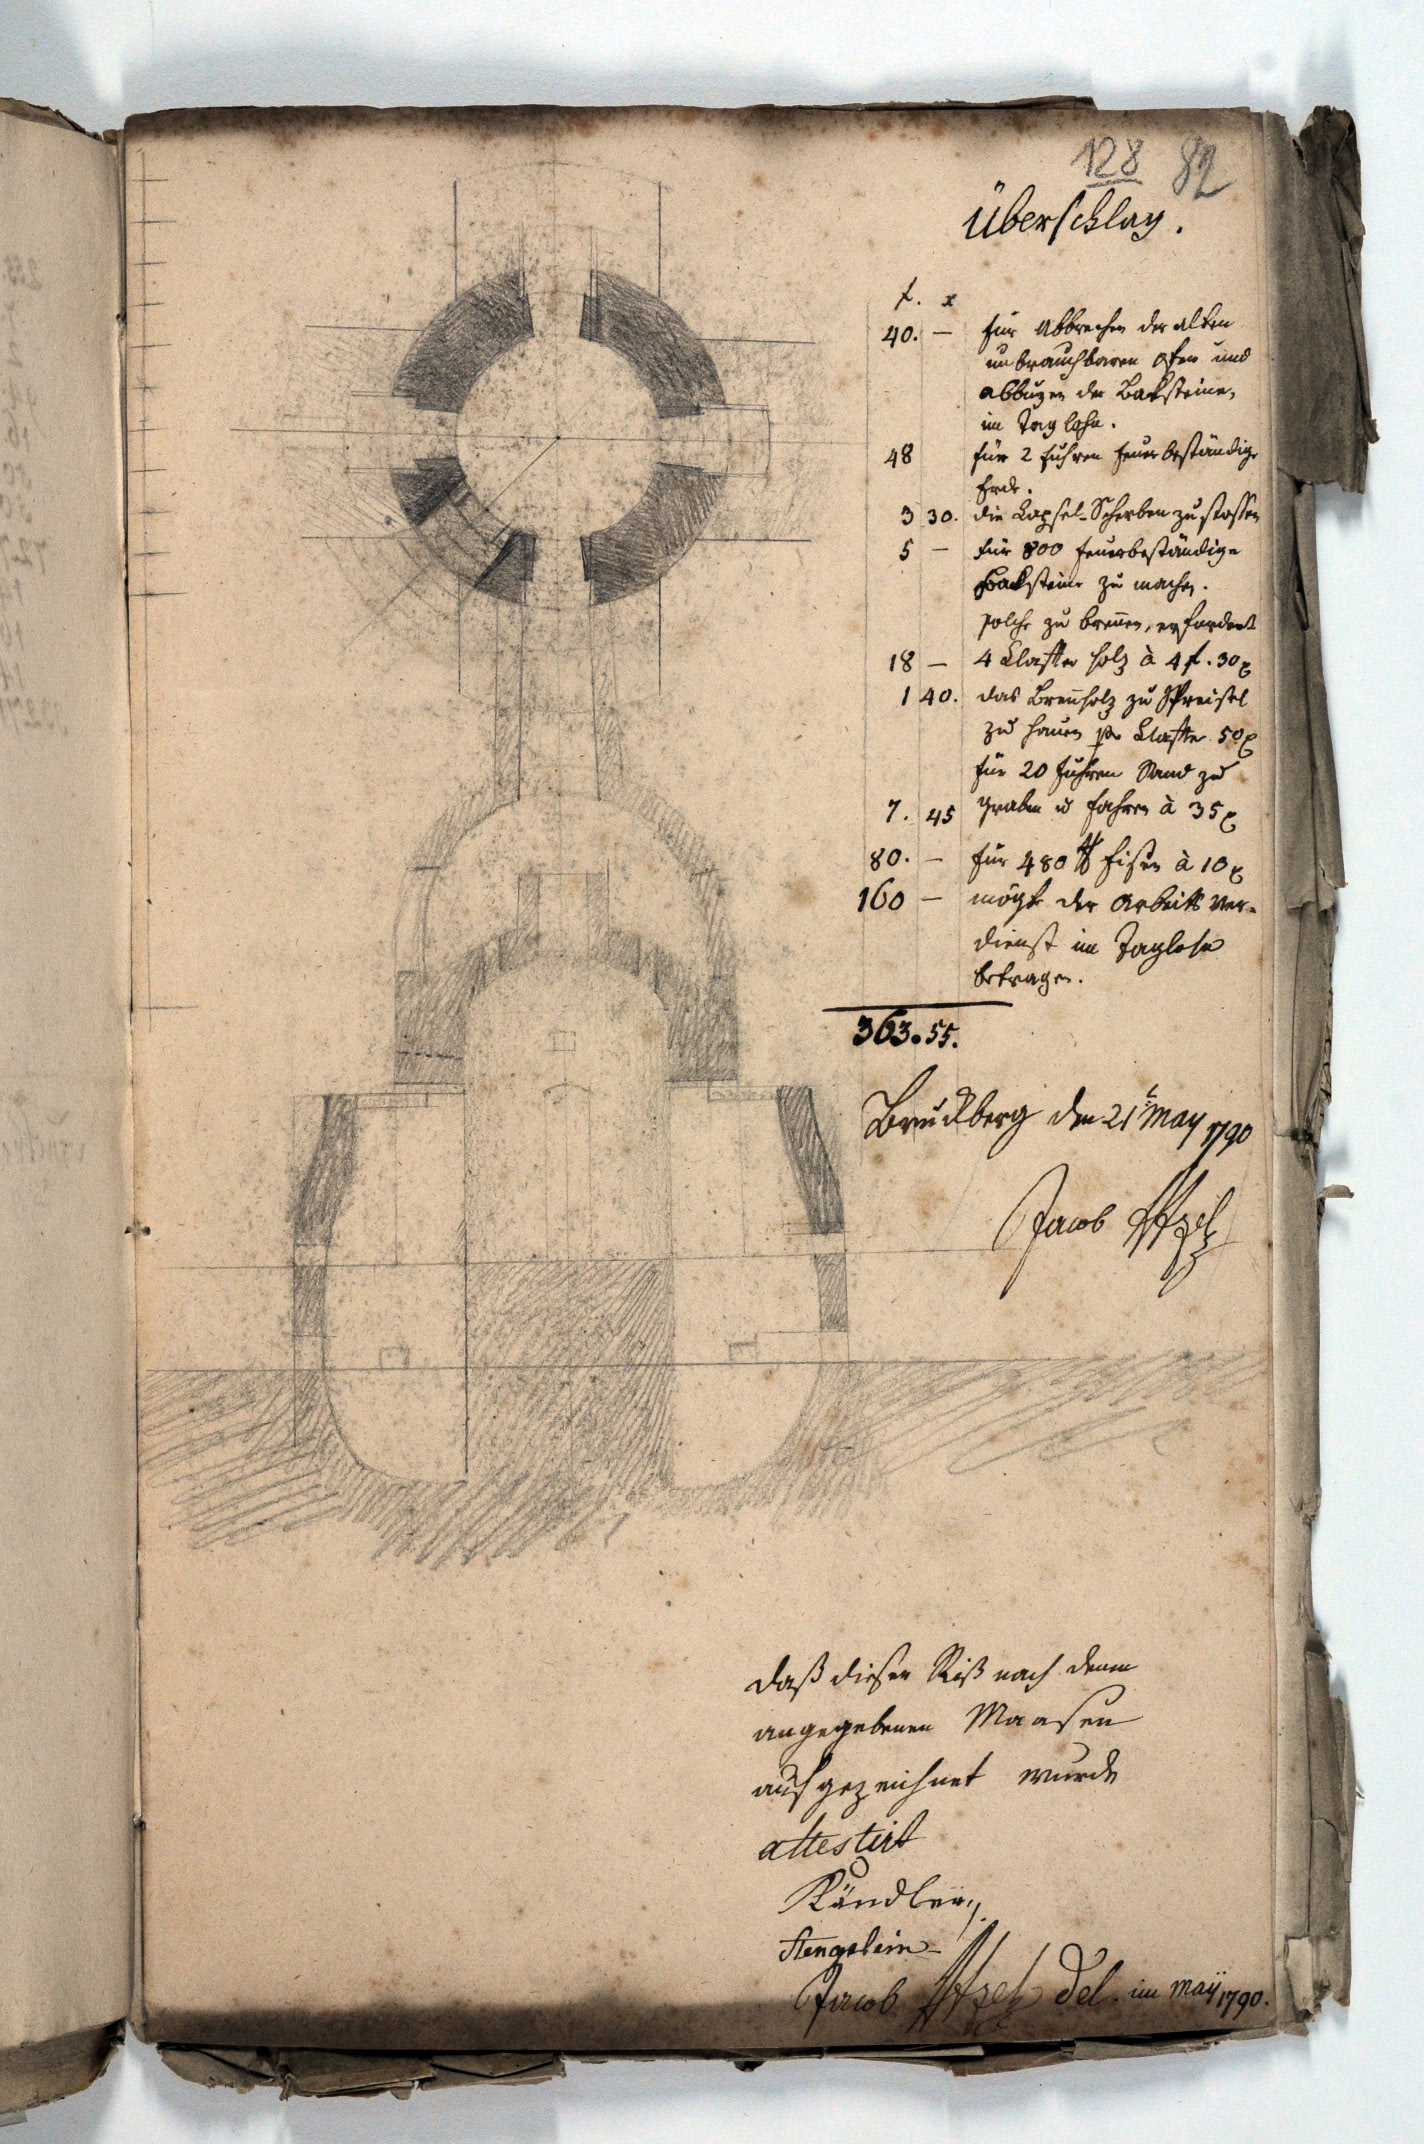 128 82
Überschlag.
f. x
40. — für Abbrechen der alten
unbrauchbaren Ofen und
abbuzen der Baksteine,
im Taglohn.
48 für 2 Fuhren feuerbeständige
Erde.
3 30. die Kapsel-Scherben zu stossen
5 — für 800 feuerbeständige
Baksteine zu machen.
solche zu brennen, erfordert
18 — 4 Klaffter Holz à 4 f. 30 x
1 40. das Brennholz zu Spreisel
zu hauen pr Klaffter 50 x
für 20 Fuhren Sand zu
7. 45 graben u fahren à 35 x
80. — für 480 ℔ Eisen à 10 x
160 — mögte der Arbeits Ver-
dienst im Taglohn
betragen.
363. 55.
Bruckberg den 21t May 1790
Jacob
daß dieser Riß nach denen
angegebenen Maasen
aufgezeichnet wurde
attestirt
Kändler
Stenglein
Jacob del. im Maÿ 1790.